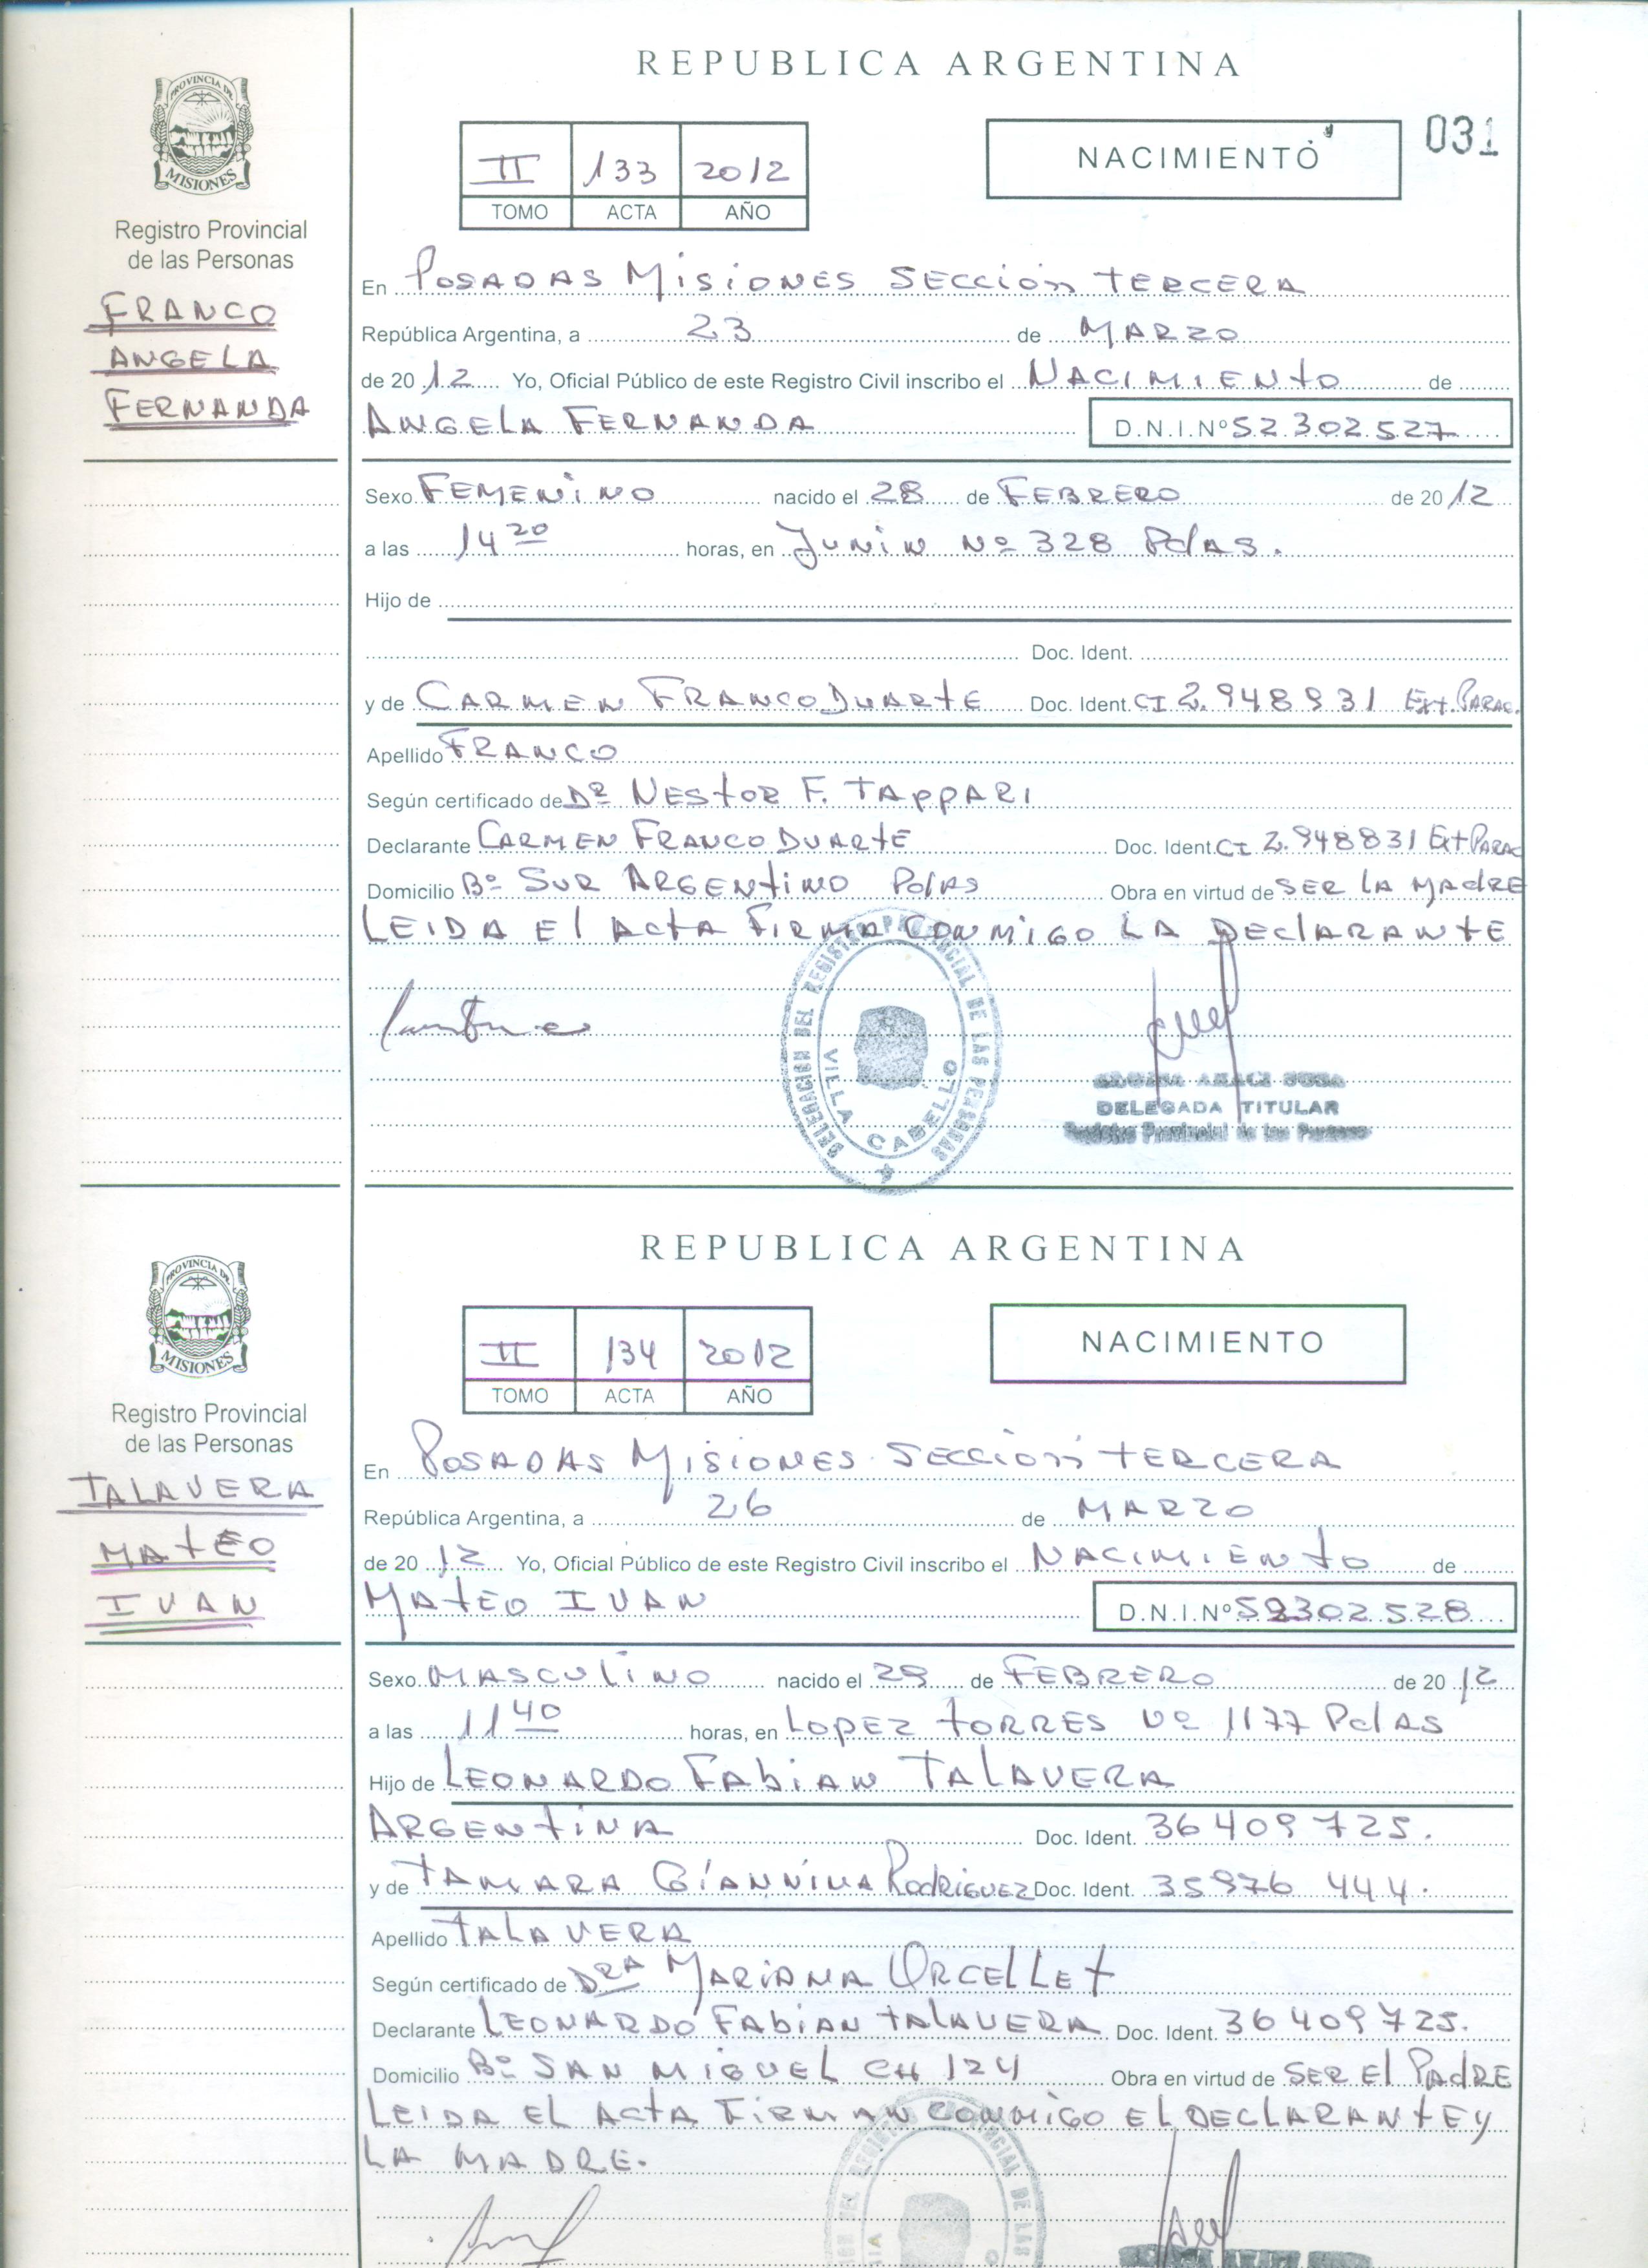 REPUBLICA ARGENTINA
PROVINCIA DE
MISIONES
II 133 2012
TOMO ACTA AÑO
NACIMIENTO
031
Registro Provincial
de las Personas
FRANCO
ANGELA
FERNANDA
En POSADAS MISIONES SECCIÓN TERCERA
República Argentina, a 23 de MARZO
de 2012 Yo, Oficial Público de este Registro Civil inscribo el NACIMIENTO de
ANGELA FERNANDA D.N.I.Nº 52.302.527
Sexo FEMENINO nacido el 28 de FEBRERO de 2012
a las 14 20 horas, en JUNIN Nº 328 Pdas.
Hijo de
Doc. Ident.
y de CARMEN FRANCO DUARTE Doc. Ident. CI 2.948831 Ext. PARAG.
Apellido FRANCO
Según certificado de DR NESTOR F. TAPPARI
Declarante CARMEN FRANCO DUARTE Doc. Ident. CI 2.948831 Ext PARAG
Domicilio Bº SUR ARGENTINO Pdas Obra en virtud de SER LA MADRE
LEIDA El ACTA FIRMA CONMIGO LA DEClARANTE
DELEGACION DEL REGISTRO PROVINCIAL DE LAS PERSONAS
VILLA CABELLO
DELEGADA TITULAR
Registro Provincial de las Personas
REPUBLICA ARGENTINA
PROVINCIA DE
MISIONES
II 134 2012
TOMO ACTA AÑO
NACIMIENTO
Registro Provincial
de las Personas
TALAVERA
MATEO
IVAN
En POSADAS MISIONES SECCIÓN TERCERA
República Argentina, a 26 de MARZO
de 2012 Yo, Oficial Público de este Registro Civil inscribo el NACIMIENTO de
MATEO IVAN D.N.I.Nº 52302528
Sexo MASCULINO nacido el 29 de FEBRERO de 2012
a las 11 40 horas, en LOPEZ TORRES Nº 1177 Pdas
Hijo de LEONARDO FABIAN TALAVERA
ARGENTINA Doc. Ident. 36409725.
y de TAMARA GIANNINA RODRIGUEZ Doc. Ident. 35976 444.
Apellido TALAVERA
Según certificado de DRA MARIANA ORCELLET
Declarante LEONARDO FABIAN TALAVERA Doc. Ident. 36409725.
Domicilio Bº SAN MIGUEL CH 124 Obra en virtud de SER El PADRE
LEIDA EL ACTA FIRMAN CONMIGO EL DECLARANTE y
LA MADRE.